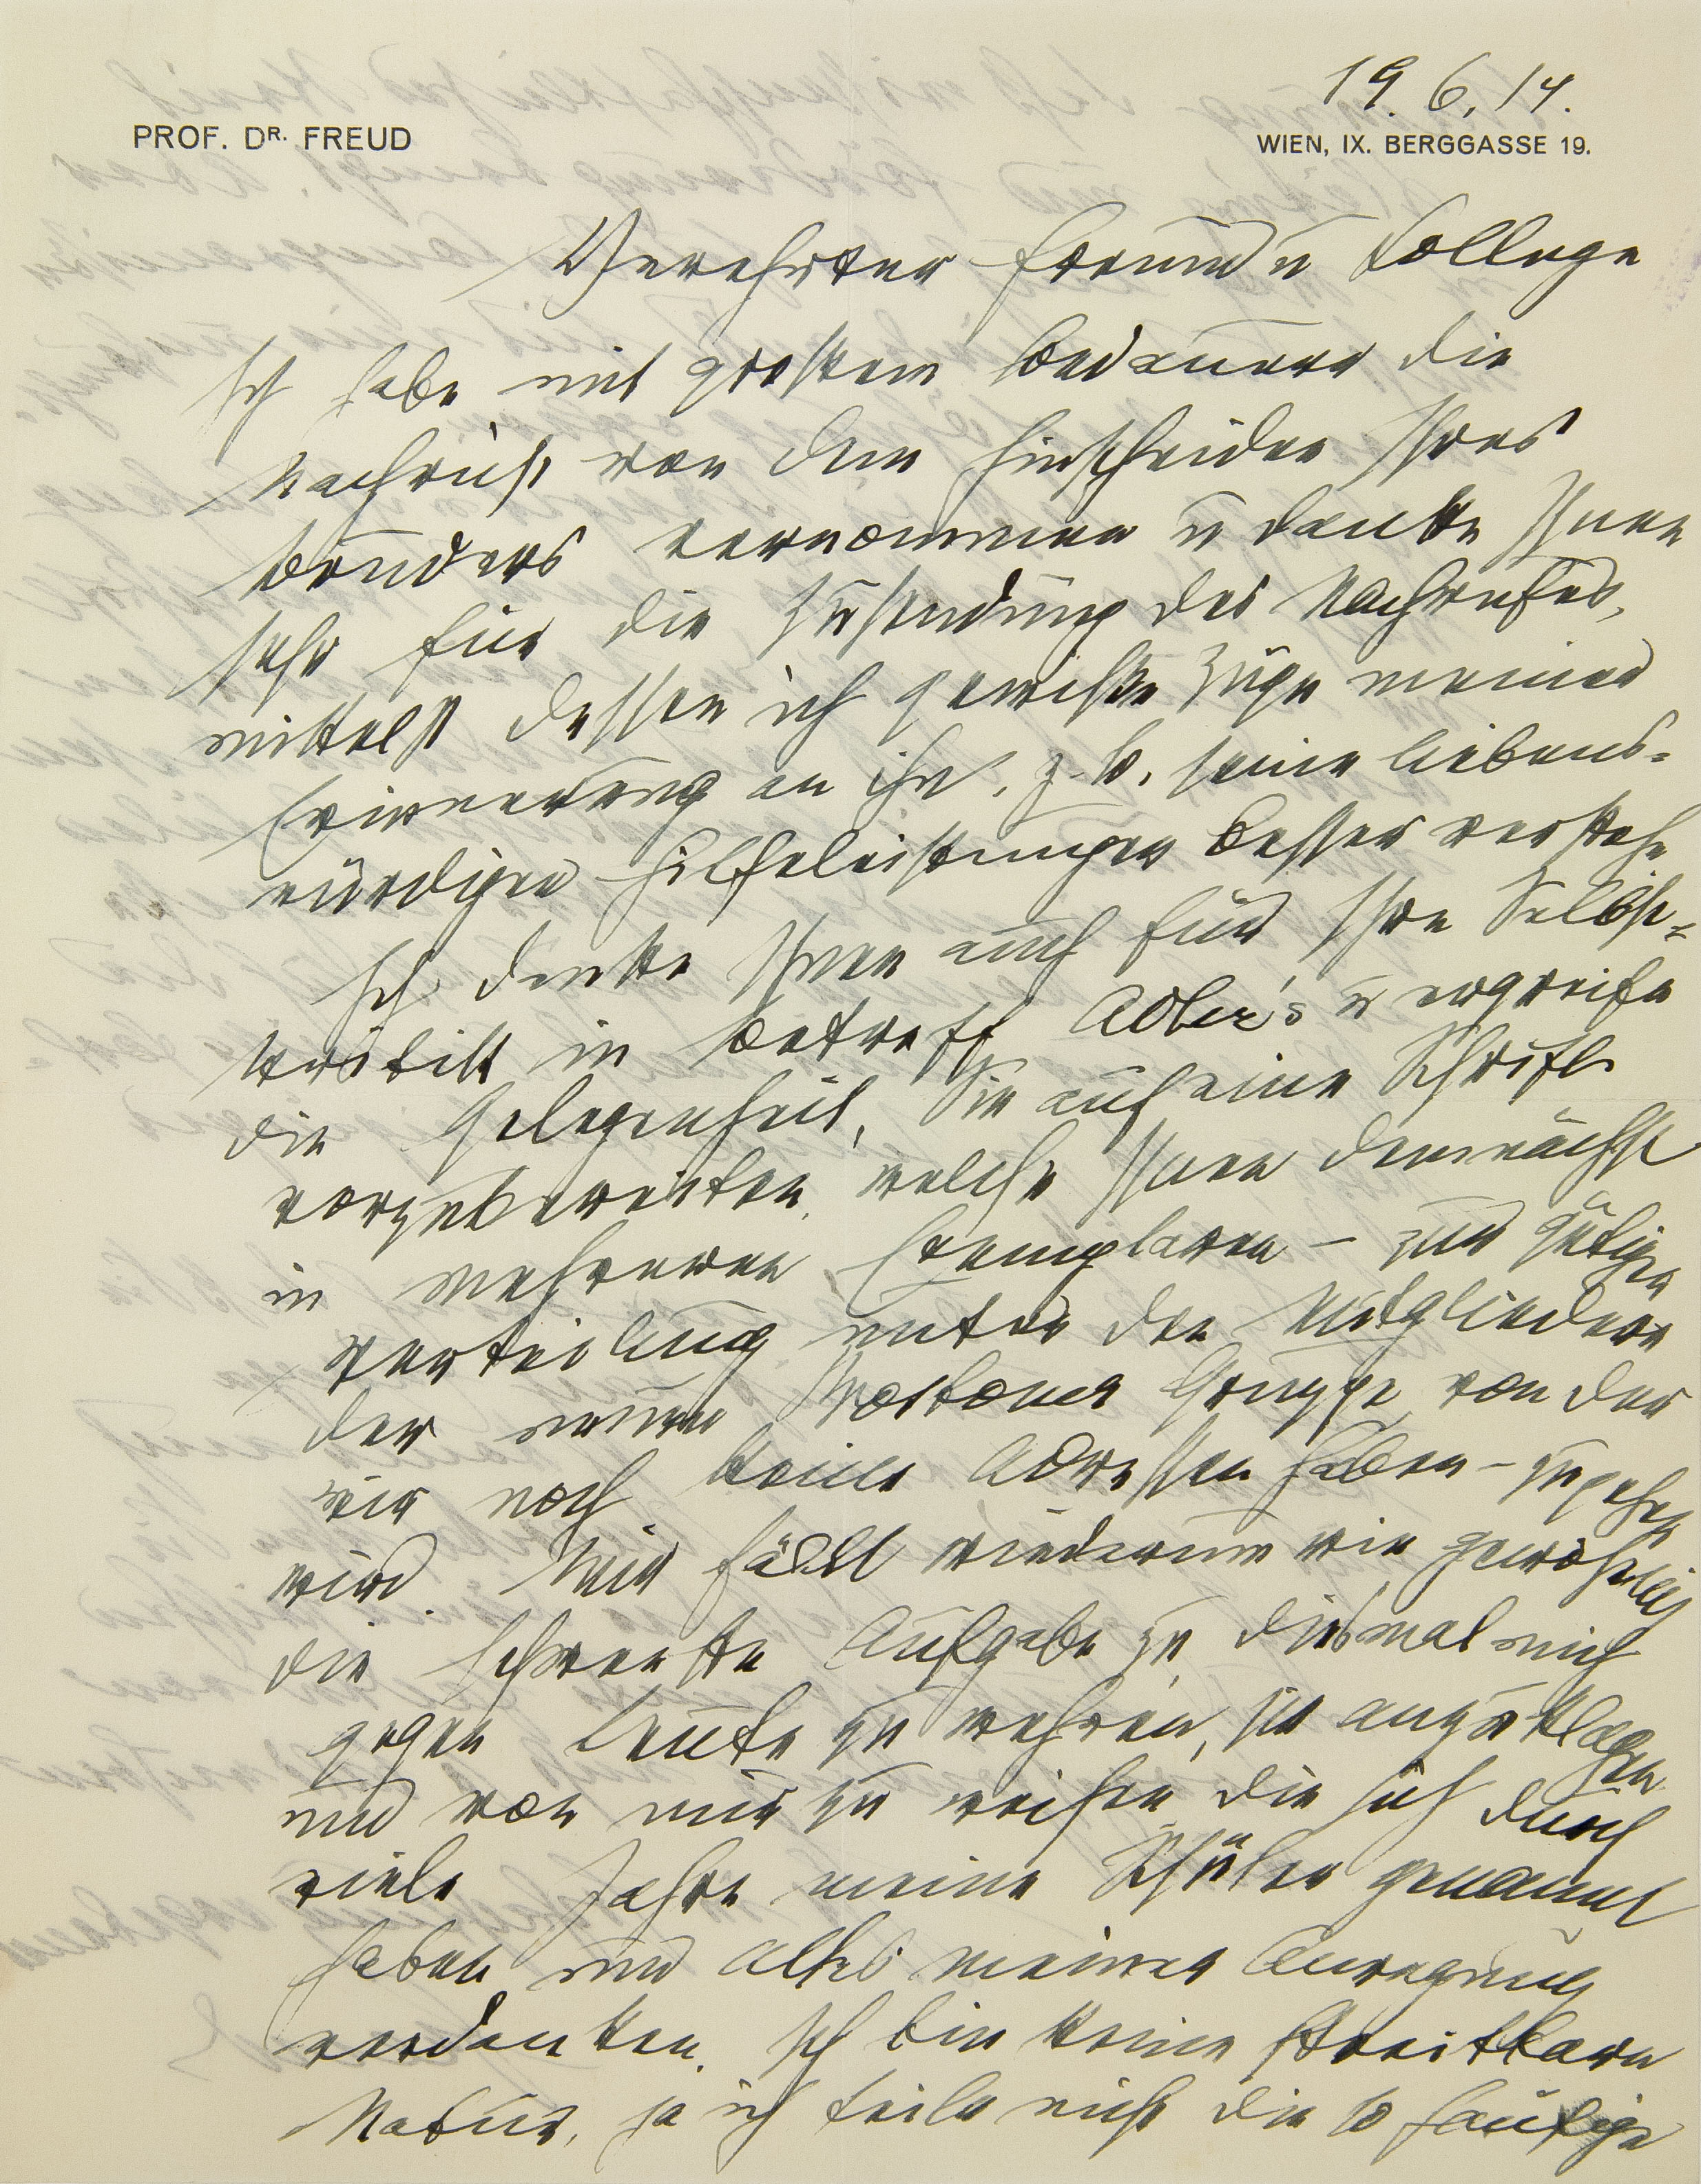 19. 6. 14.
PROF. DR. FREUD
WIEN, IX. BERGGASSE 19.
Verehrter Freund u College
Ich habe mit großem Bedauern die
Nachricht von dem Hinscheiden Ihres
Bruders vernommen u danke Ihnen
sehr für die Zusendung des Nachrufes,
mittelst dessen ich gewisse Züge meiner
Erinnerung an ihn, z. B. seine liebens-
würdigen Hilfeleistungen besser verstehe
Ich danke Ihnen auch für Ihre Selbst-
kritik in betreff Adler's u ergreife
die Gelegenheit, Sie auf eine Schrift
vorzubereiten, welche Ihnen demnächst
in mehreren Exemplaren – zur gütigen
Verteilung unter den Mitgliedern
der neuen Bostoner Gruppe, von der
wir noch keine Adressen haben – zugehen
wird. Mir fällt wiederum wie gewöhnlich
die schwerste Aufgabe zu, diesmal mich
gegen Leute zu wehren, sie anzuklagen
und von mir zu weisen die sich durch
viele Jahre meine Schüler genannt
haben und alles meiner Anregung
verdanken. Ich bin keine streitbare
Natur, ja ich teile nicht die so häufige